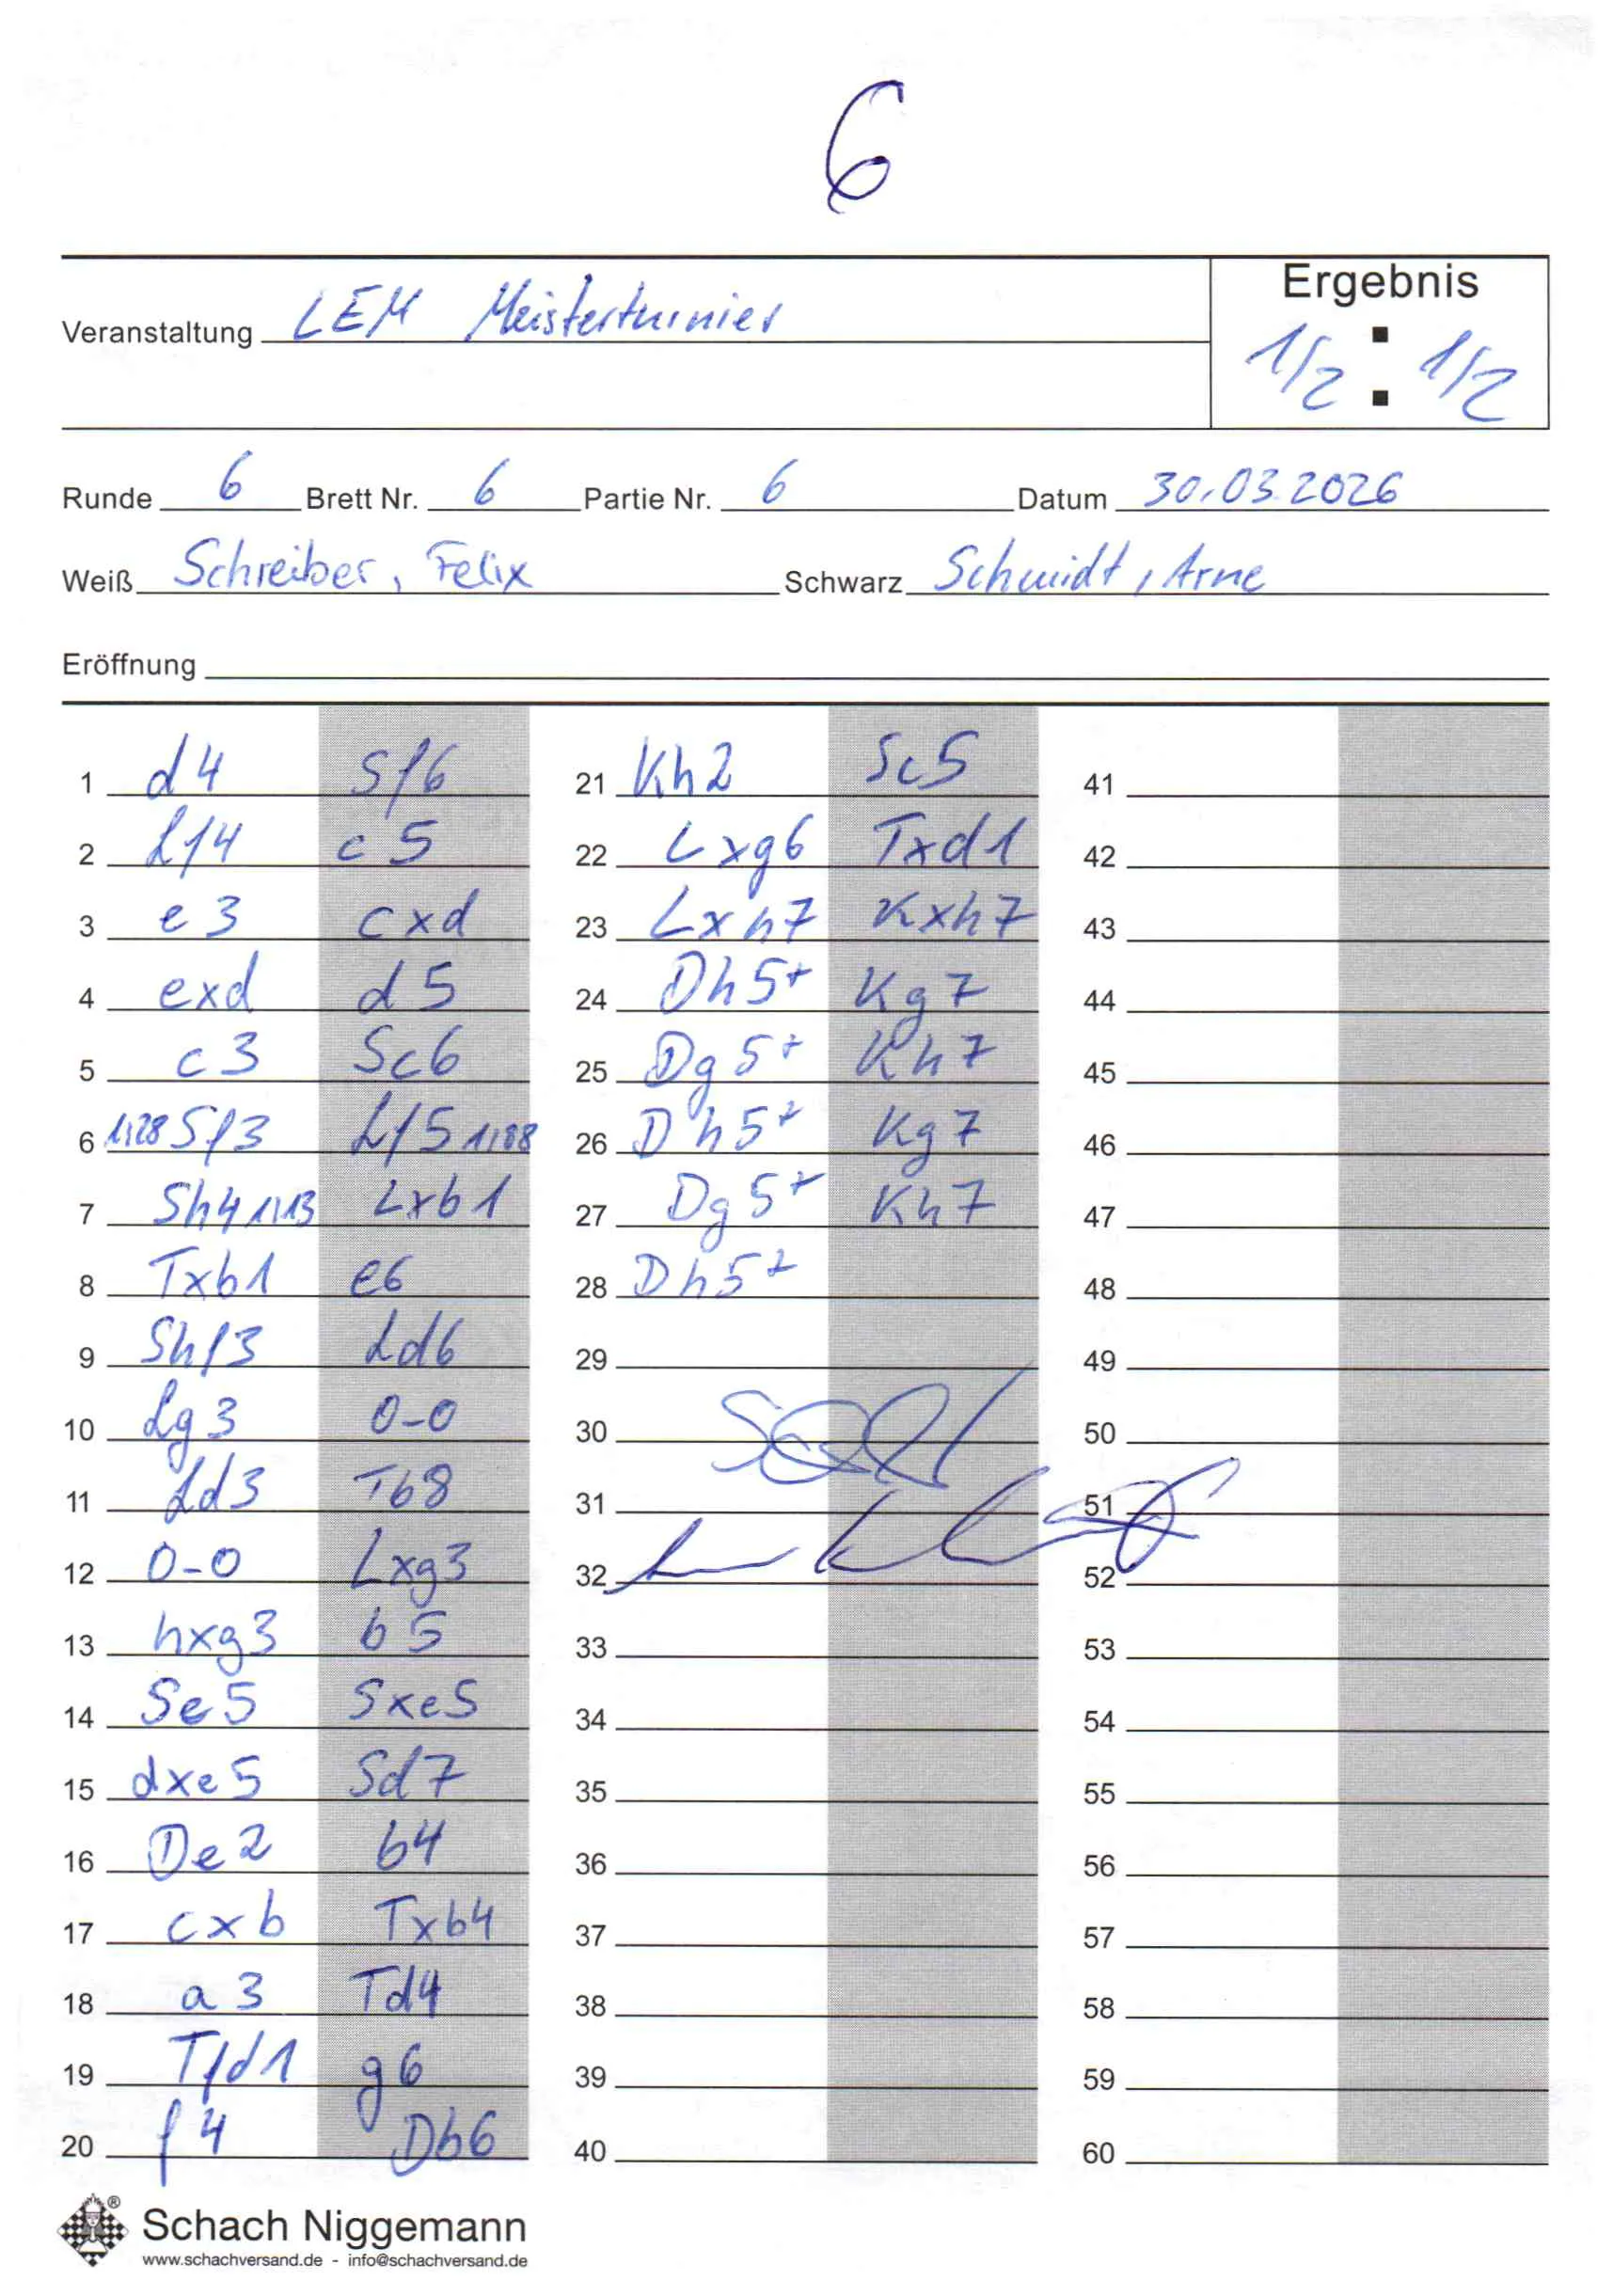 6
Ergebnis
Veranstaltung LEM Meisterturnier
1/2 : 1/2
Runde 6 Brett Nr. 6 Partie Nr. 6 Datum 30.03.2026
Weiß Schreiber, Felix Schwarz Schmidt, Arne
Eröffnung
1 d4 Sf6
2 Lf4 c5
3 e3 cxd
4 exd d5
5 c3 Sc6
6 1:28 Sf3 Lf5
7 Sh4 1:13 Lxb1
8 Txb1 e6
9 Shf3 Ld6
10 Lg3 0-0
11 Ld3 Tb8
12 0-0 Lxg3
13 hxg3 b5
14 Se5 Sxe5
15 dxe5 Sd7
16 De2 b4
17 cxb Txb4
18 a3 Td4
19 Tfd1 g6
20 f4 Db6
21 Kh2 Sc5
22 Lxg6 Txd1
23 Lxh7 Kxh7
24 Dh5+ Kg7
25 Dg5+ Kh7
26 Dh5+ Kg7
27 Dg5+ Kh7
28 Dh5+
29
30
31
32
33
34
35
36
37
38
39
40
41
42
43
44
45
46
47
48
49
50
51
52
53
54
55
56
57
58
59
60
®
Schach Niggemann
www.schachversand.de - info@schachversand.de